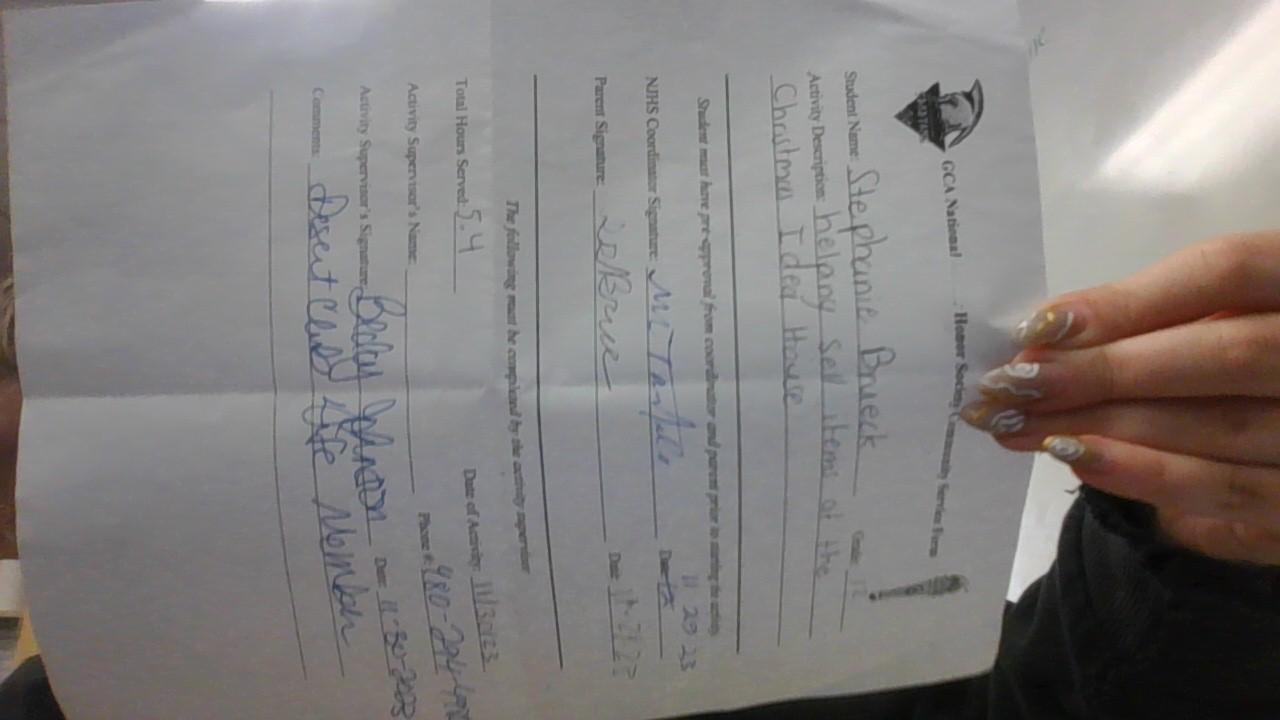 GCA National Honor Society Community Service Form
Student Name: Stephanie Brueck Grade: 12
Activity Description: helping sell items at the
Christmas Idea House
Student must have pre-approval from coordinator and parent prior to starting the activity.
11 29 23
NJHS Coordinator Signature: Date:
Parent Signature: Date:
The following must be completed by the activity supervisor
Total Hours Served: 5.4 Date of Activity: 11/30/23
Activity Supervisor's Name: Phone #: 480-
Activity Supervisor's Signature: Johnson Date: 11-30-2023
Comments: Desert Club Life Member